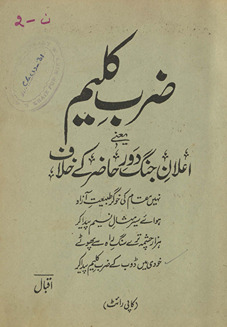 ن-2
ضربِ کلیم
یعنی
اعلانِ جنگ دورِ حاضر کے خلاف
نہیں مقام کی خوگر طبیعتِ آزاد
ہوائے سیر مثالِ نسیم پیدا کر
ہزار چشمہ ترے سنگِ راہ سے پھوٹے
خودی میں ڈوب کے ضربِ کلیم پیدا کر
اقبال
(کاپی رائٹ)